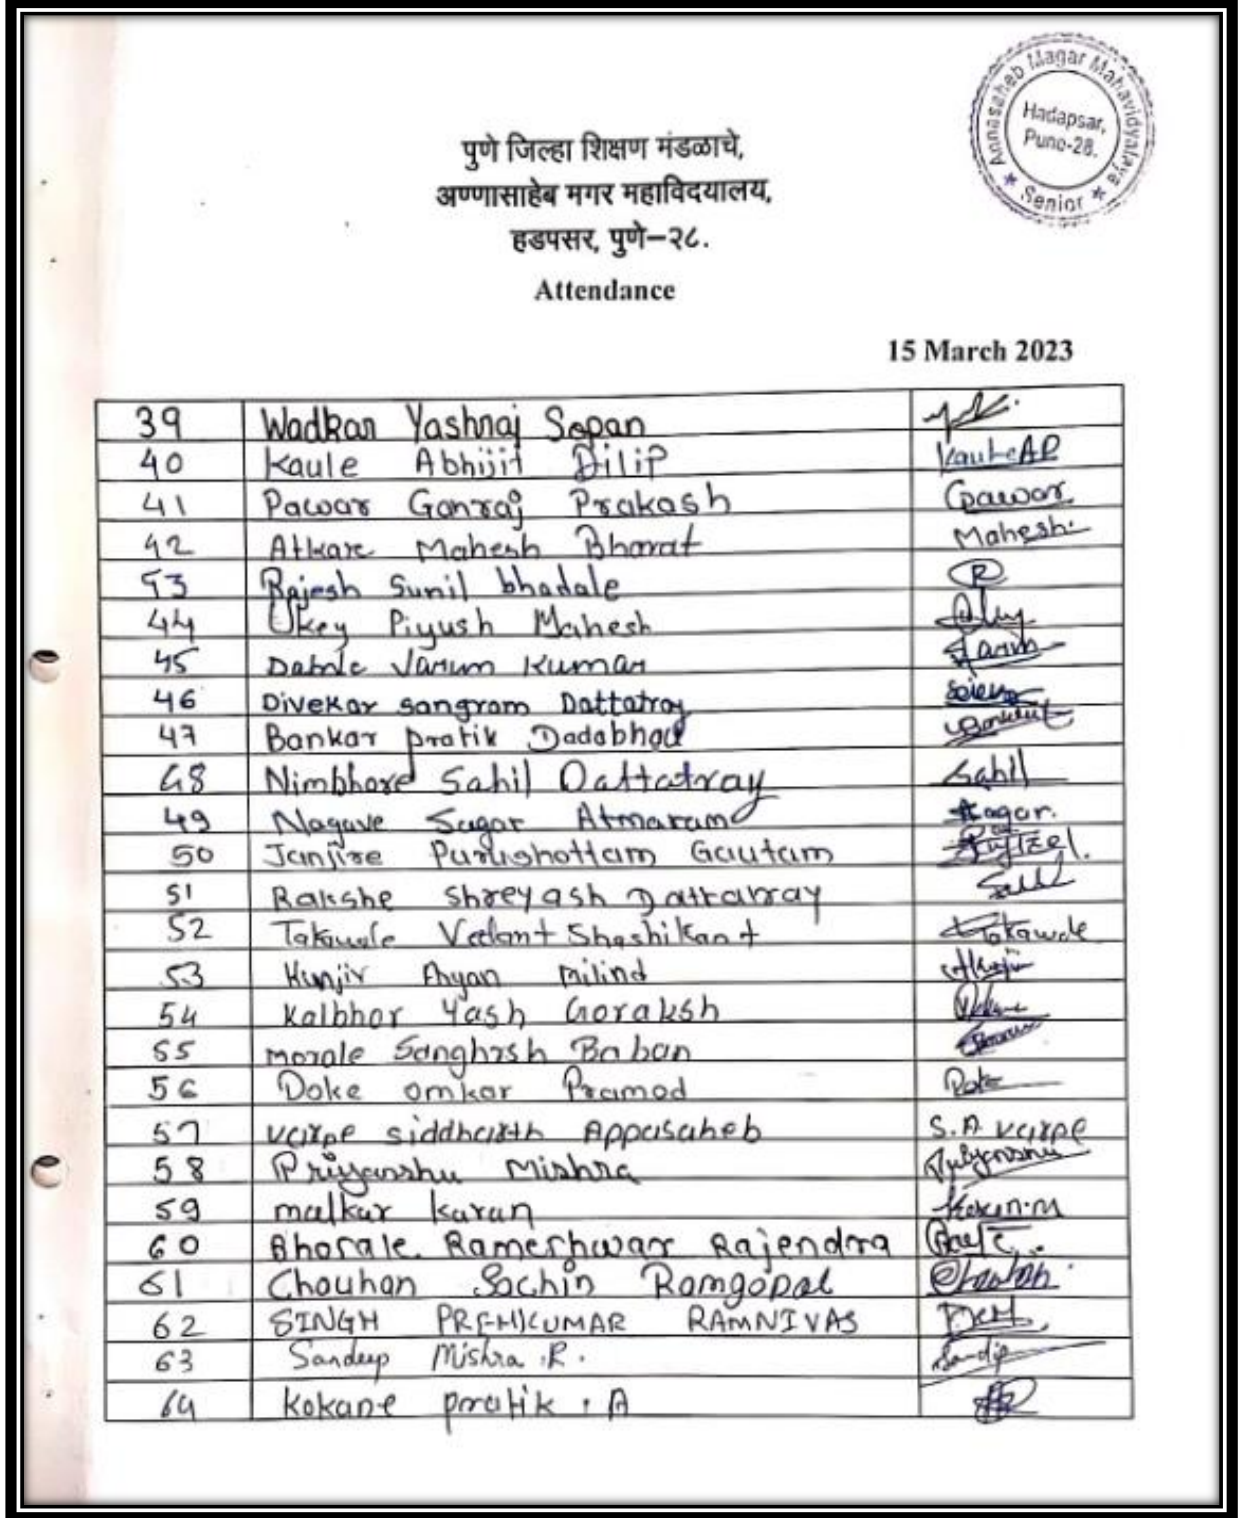 Annasaheb Magar Mahavidyalaya
Hadapsar,
Pune-28.
★ Senior ★
पुणे जिल्हा शिक्षण मंडळाचे,
अण्णासाहेब मगर महाविदयालय,
हडपसर, पुणे–२८.
Attendance
15 March 2023
39 Wadkar Yashraj Sopan
40 Kaule Abhijit Dilip KauleAD
41 Pawar Ganraj Prakash Gpawar
42 Atkare Mahesh Bharat Mahesh
43 Rajesh Sunil bhadale R
44 Ukey Piyush Mahesh
45 Dabhle Varun Kumar
46 Divekar sangram Dattatray
47 Bankar pratik Dadabhau
48 Nimbhore Sahil Dattatray Sahil
49 Nagave Sagar Atmaram Sagar.
50 Janjire Purushottam Gautam
51 Rakshe Shreyash Dattatray
52 Takawale Vedant Shashikant Takawale
53 Kunjir Ahyan Milind
54 Kalbhor Yash Goraksh
55 morale Sangharsh Baban
56 Doke omkar Pramod Doke
57 varpe siddharth Appasaheb S.A varpe
58 Priyanshu Mishra Priyanshu
59 malkar karan karan.m
60 Bhorale. Rameshwar Rajendra
61 Chauhan Sachin Ramgopal Chauhan
62 SINGH PREMKUMAR RAMNIVAS Prem
63 Sandeep Mishra .R. Sandip
64 Kokane pratik . A